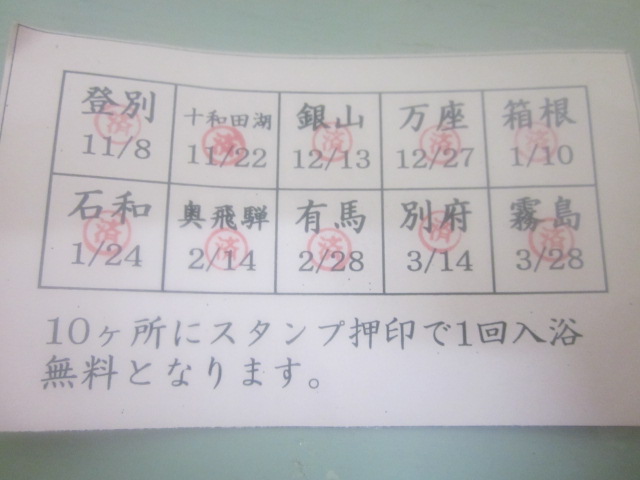 登別 十和田湖 銀山 万座 箱根
済 済 済 済 済
11/8 11/22 12/13 12/27 1/10
石和 奥飛騨 有馬 別府 霧島
済 済 済 済 済
1/24 2/14 2/28 3/14 3/28
10ヶ所にスタンプ押印で1回入浴
無料となります。